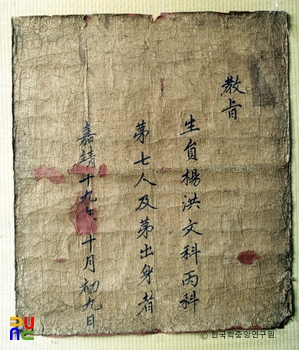 教旨
生員楊洪文科丙科
第七人及第出身者
嘉靖十九年十月初九日
© 한국학중앙연구원